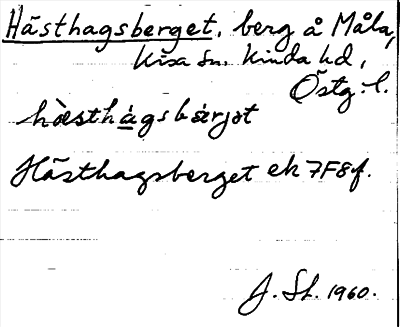 Hästhagsberget, berg å Måla,
Kisa sn. Kinda hd,
Östg. l.
hàsthágsbárjət
Hästhagsberget ek 7F8f.
J. Sh. 1960.